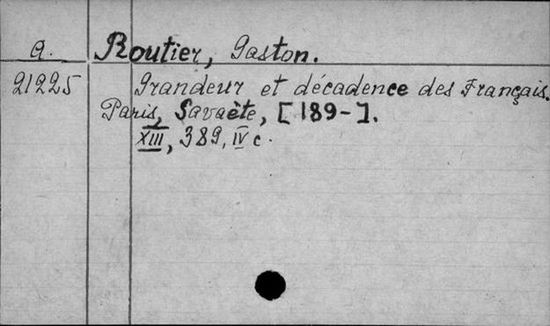 a. Routier, Gaston.
21225 Grandeur et décadence des Français.
Paris, Savaète, [189-].
XIII, 389, IV c.